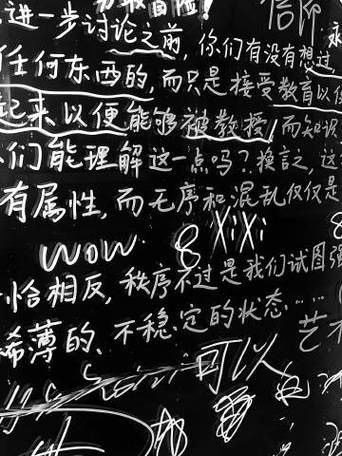 信仰
进一步讨论之前，你们有没有想过
任何东西的，而只是接受教育以便
起来以便能够被教授，而知识
们能理解这一点吗？换言之，这
有属性，而无序和混乱仅仅是
wow. 8 XiXi
恰恰相反，秩序不过是我们试图强
稀薄的、不稳定的状态……
艺
可以